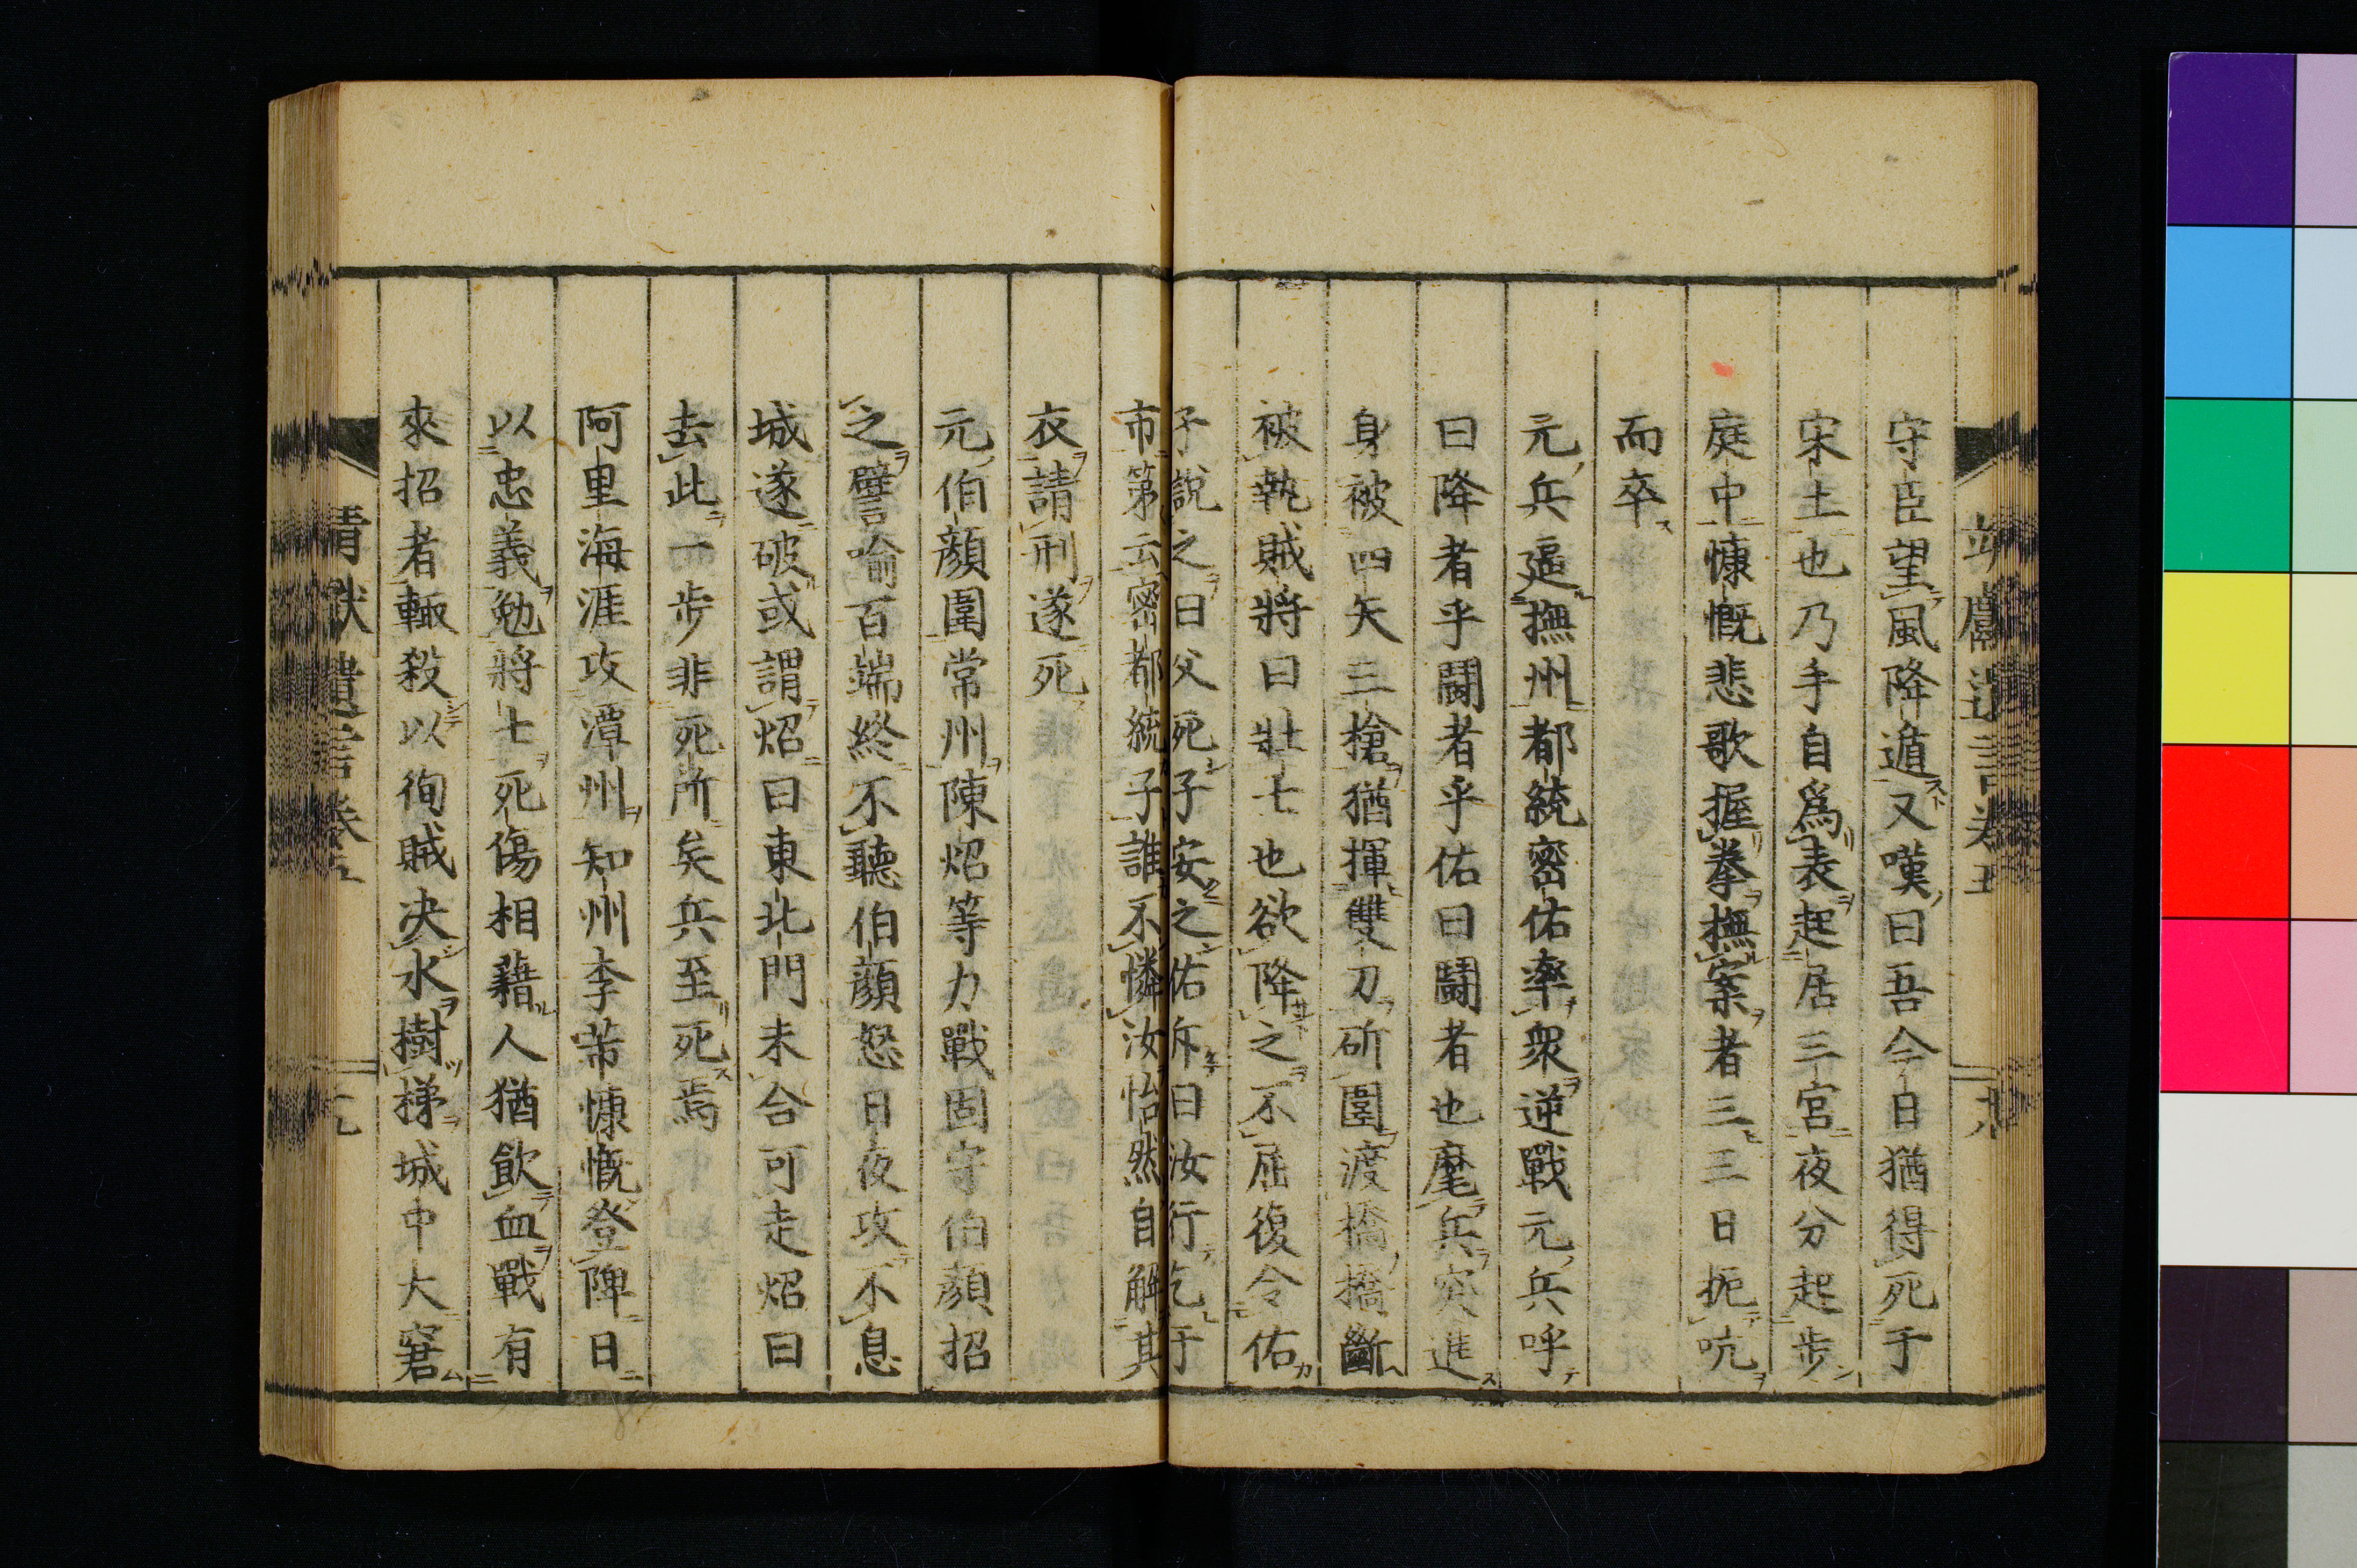 守臣望風降遁又嘆曰吾今日猶得死于
宋土也乃手自爲表起居三宮夜分起步
庭中慷慨悲歌握拳撫案者三三日扼吭
而卒
元兵逼撫州都統密佑率衆逆戰元兵呼
曰降者乎鬪者乎佑曰鬪者也麾兵突進
身被四矢三槍猶揮雙刀斫圍渡橋橋斷
被執賊將曰壯士也欲降之不屈復令佑
子說之曰父死子安之佑斥曰汝行乞于
市第云密都統子誰不憐汝怡然自解其
衣請刑遂死
元伯顏圍常州陳炤等力戰固守伯顏招
之譬喻百端終不聽伯顏怒日夜攻不息
城遂破或謂炤曰東北門未合可走炤曰
去此一步非死所矣兵至死焉
阿里海涯攻潭州知州李芾慷慨登陴日
以忠義勉將士死傷相藉人猶飲血戰有
來招者輒殺以徇賊决水樹梯城中大窘